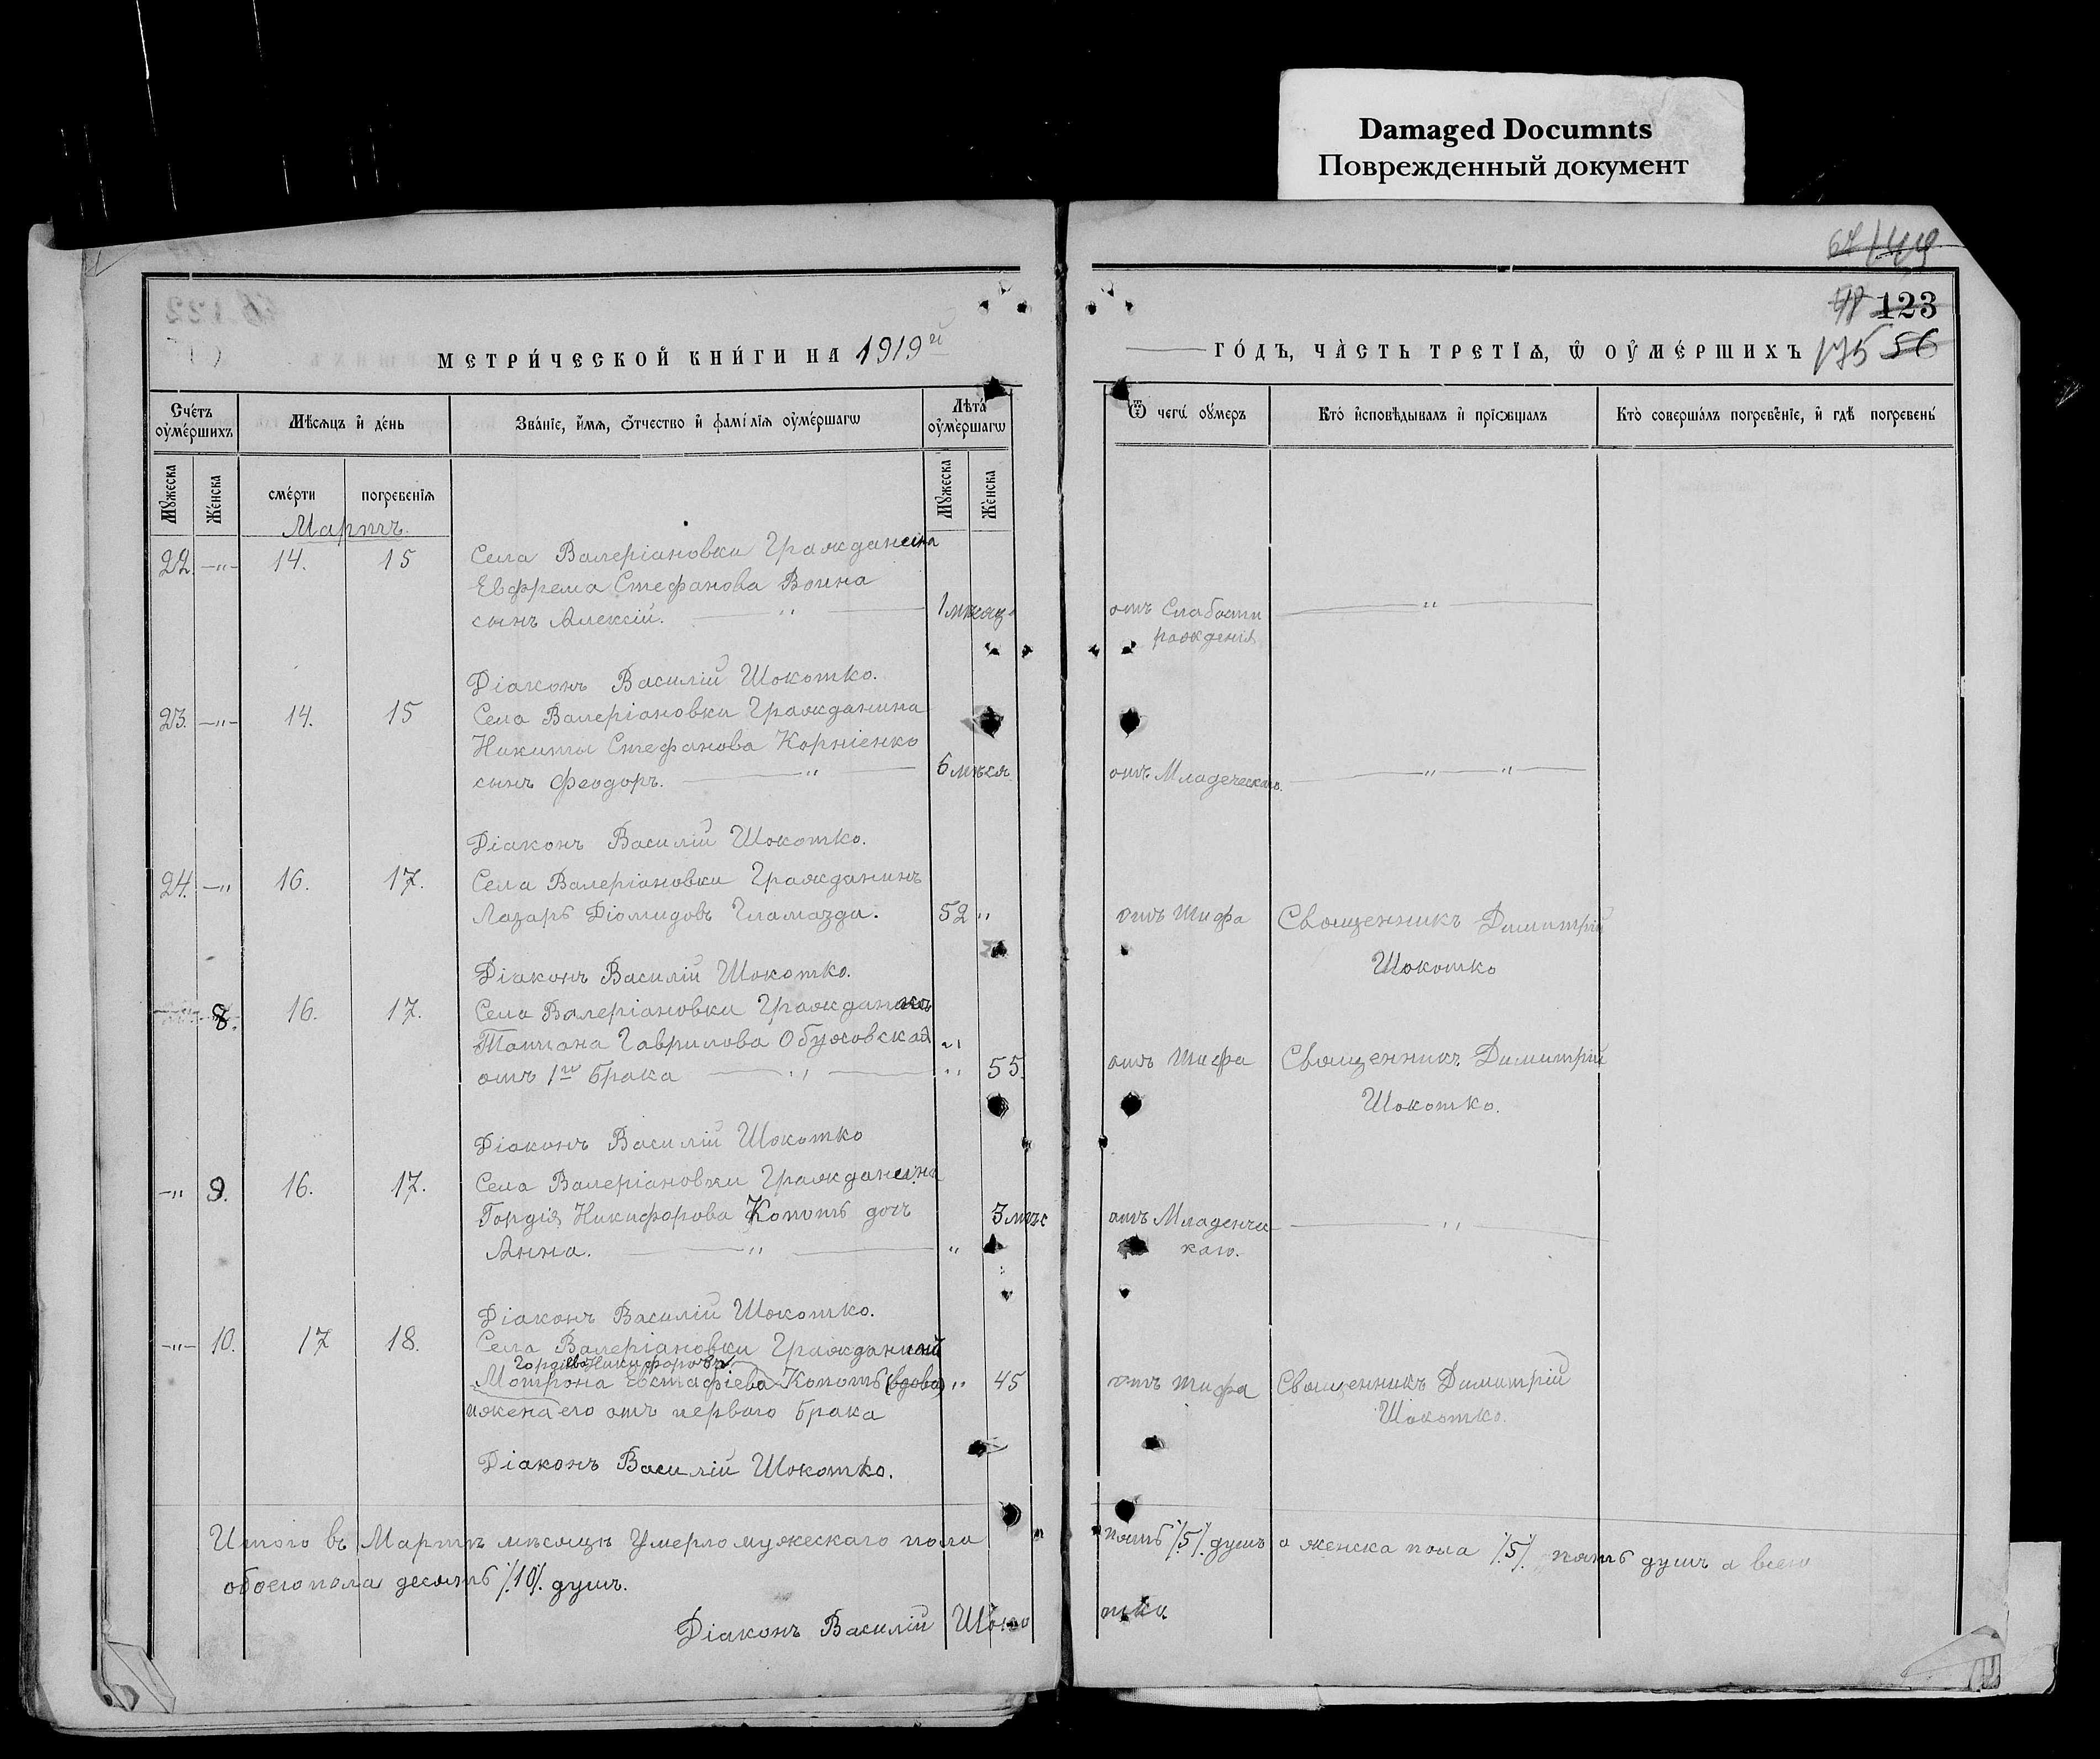 Damaged Documnts
Поврежденный документ
67 149
123
175 56
МЕТРИ́ЧЕСКОЙ КНИ́ГИ НА 1919й
ГО́ДЪ, ЧА̀СТЬ ТРЕТІѦ, Ѡ҆ ОУ҆МЕ́РШИХЪ
Сче́тъ оу҆ме́ршихъ
Мѣ́сяцъ и҆ де́нь
Зва́нїе, и҆́мя, ѻ҆́тчество и҆ фами́лїя оу҆ме́ршагѡ
Лѣта̀ оу҆ме́ршагѡ
Ѿ чегѡ̀ оу҆́меръ
Кто̀ и҆сповѣ́дывалъ и҆ прїѡбща́лъ
Кто̀ соверша́лъ погребе́нїе, и҆ гдѣ̀ погребены̀
Мꙋ́жеска
Же́нска
сме́рти
погребе́нїя
Мꙋ́жеска
Же́нска
Мартъ.
22. —"— 14. 15 Села Валеріановки Гражданина
Евфрема Стефанова Воина
сынъ Алексій. —"— 1 мѣсяц. отъ Слабости —"—
рожденія
Діаконъ Василій Шокотко.
23. —"— 14. 15 Села Валеріановки Гражданина
Никиты Стефанова Корніенко
сынъ Феодоръ. —"— 6 мѣся отъ Младеческаго. —"—"—
Діаконъ Василій Шокотко.
24. —" 16. 17. Села Валеріановки Гражданинъ
Лазарь Діомидовъ Гламазда. 52 " отъ Тифа Священникъ Димитрій
Шокотко
Діаконъ Василій Шокотко.
8. 16. 17. Села Валеріановки Гражданка
Татіана Гаврилова Обуховская "
отъ 1го брака —"— " 55. отъ Тифа Священникъ Димитрій
Шокотко.
Діаконъ Василій Шокотко
—" 9. 16. 17. Села Валеріановки Гражданина
Гордія Никифорова Копоть дочь 3 мѣс отъ Младенче —"—
Анна. —"— " каго.
Діаконъ Василій Шокотко.
—"— 10. 17 18. Села Валеріановки
Гордіева Никифорова
Мотрона Евстафіева Копоть (вдова) " 45 отъ тифа Священникъ Димитрій
жена его отъ перваго брака Шокотко.
Діаконъ Василій Шокотко.
Итого въ Мартѣ мѣсяцѣ Умерло мужескаго пола пять /5/. душъ а женска пола /5/. пять душъ а всего
обоего пола десять /10/. душъ.
Діаконъ Василій Шокотко